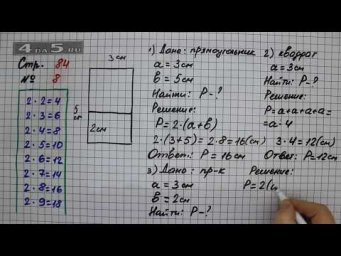 4DA5.RU
Стр. 84
№ 8
2·2=4
2·3=6
2·4=8
2·5=10
2·6=12
2·7=14
2·8=16
2·9=18
3 см
5 см
2 см
1) Дано: прямоугольник
a = 3 см
b = 5 см
Найти: P-?
Решение:
P = 2·(a+b)
2·(3+5)=2·8=16(см)
Ответ: P = 16 см
2) квадрат
a = 3 см
Найти: P-?
Решение:
P = a+a+a+a=
= a·4
3·4=12(см)
Ответ: P=12 см
3) Дано: пр-к
a = 3 см
b = 2 см
Найти: P-?
Решение:
P = 2(